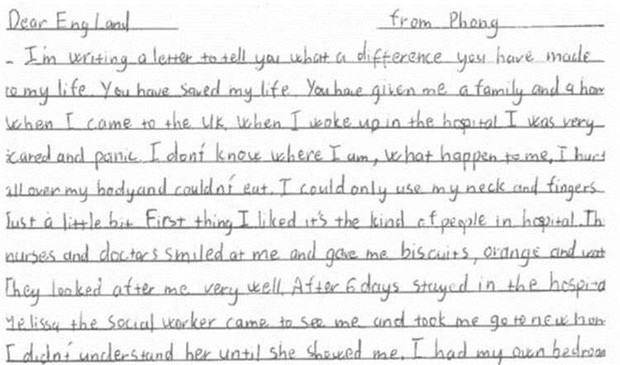 Dear England from Phong
- I'm writing a letter to tell you what a difference you have made
to my life. You have saved my life. You have given me a family and a hom
when I came to the UK. When I woke up in the hospital I was very
scared and panic. I don't know where I am, what happen to me, I hurt
all over my body and couldn't eat. I could only use my neck and fingers
Just a little bit. First thing I liked it's the kind of people in hospital. Th
nurses and doctors smiled at me and gave me biscuits, orange and wat
They looked after me very well. After 6 days stayed in the hospita
Melissa the Social worker came to see me and took me go to new hom
I didn't understand her until she showed me. I had my own bedroom